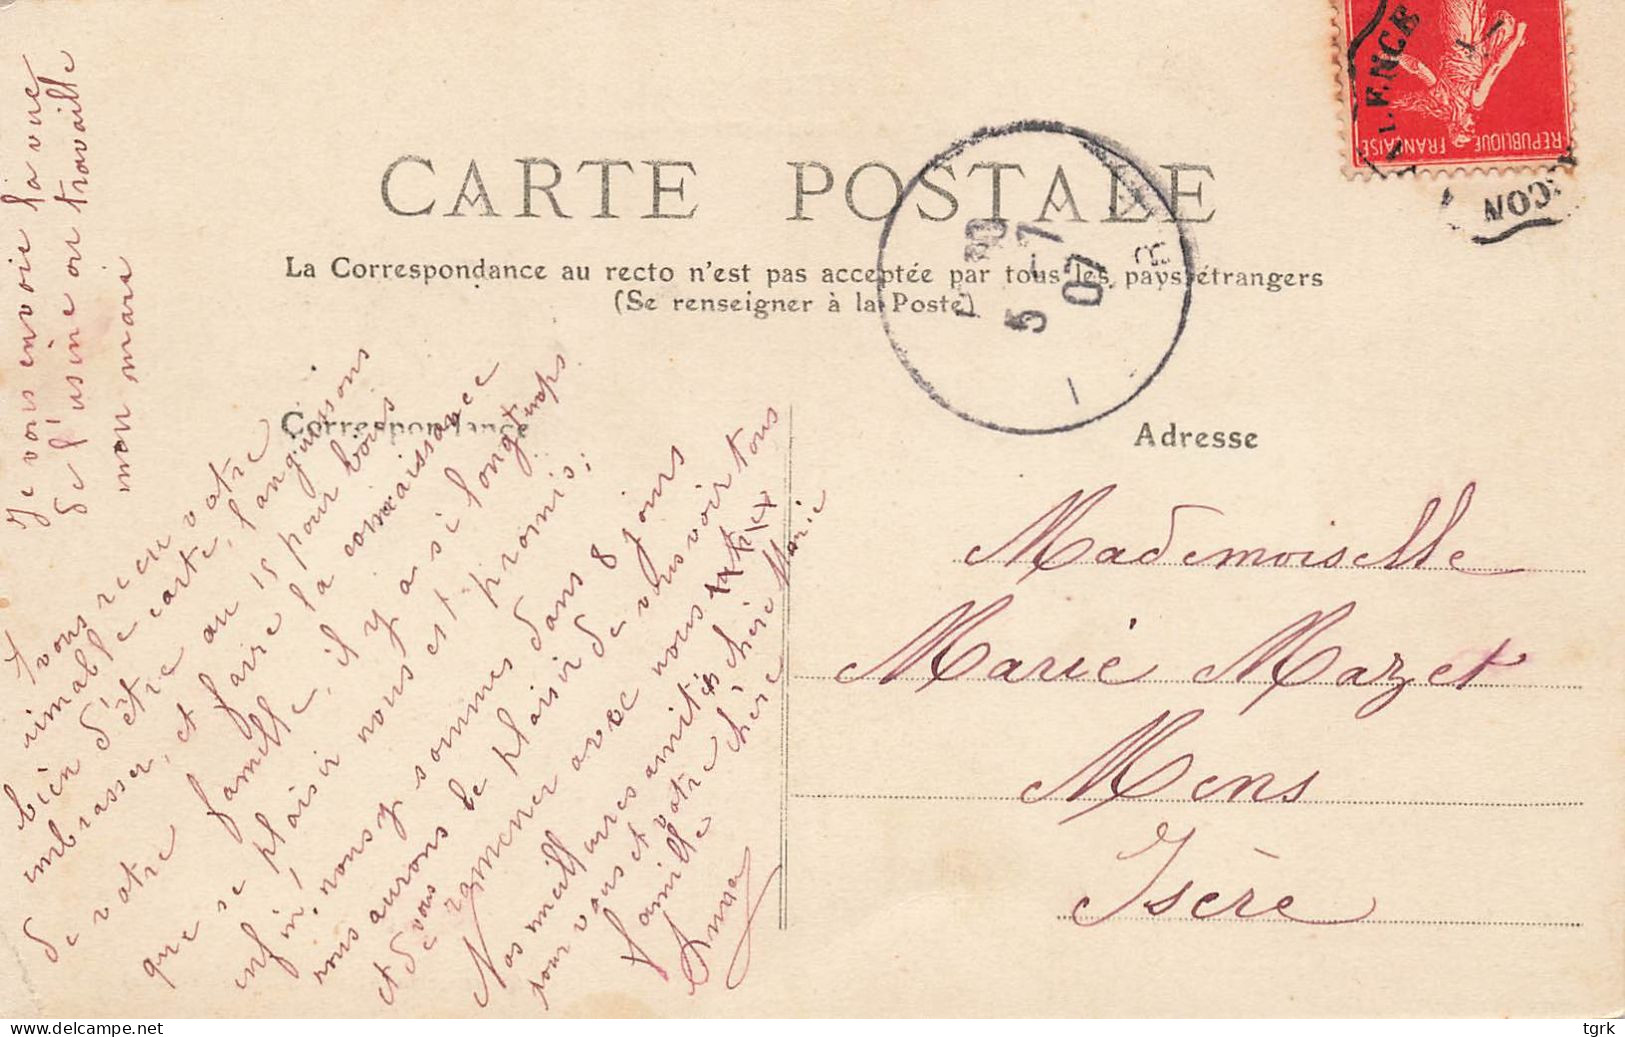 CARTE POSTALE
La Correspondance au recto n'est pas acceptée par tous les pays étrangers
(Se renseigner à la Poste)
Correspondance
Adresse
REPUBLIQUE FRANÇAISE
5 -7
07
Je vous envoie la vue
de l'usine ou travaille
mon mari
vous reçu votre
aimable carte, languissons
bien d'être au 15 pour vous
embrasser, et faire la connaissance
de votre famille, il y a si longtemps
que se plaisir nous est promis;
enfin, nous y sommes dans 8 jours
nous aurons le plaisir de vous voir tous
et de vous ramener avec nous
Nos meilleures amitiés chère Marie
pour vous et votre chère
famille
Anna
Mademoiselle
Marie Mazet
Mens
Isère
www.delcampe.net
tgrk